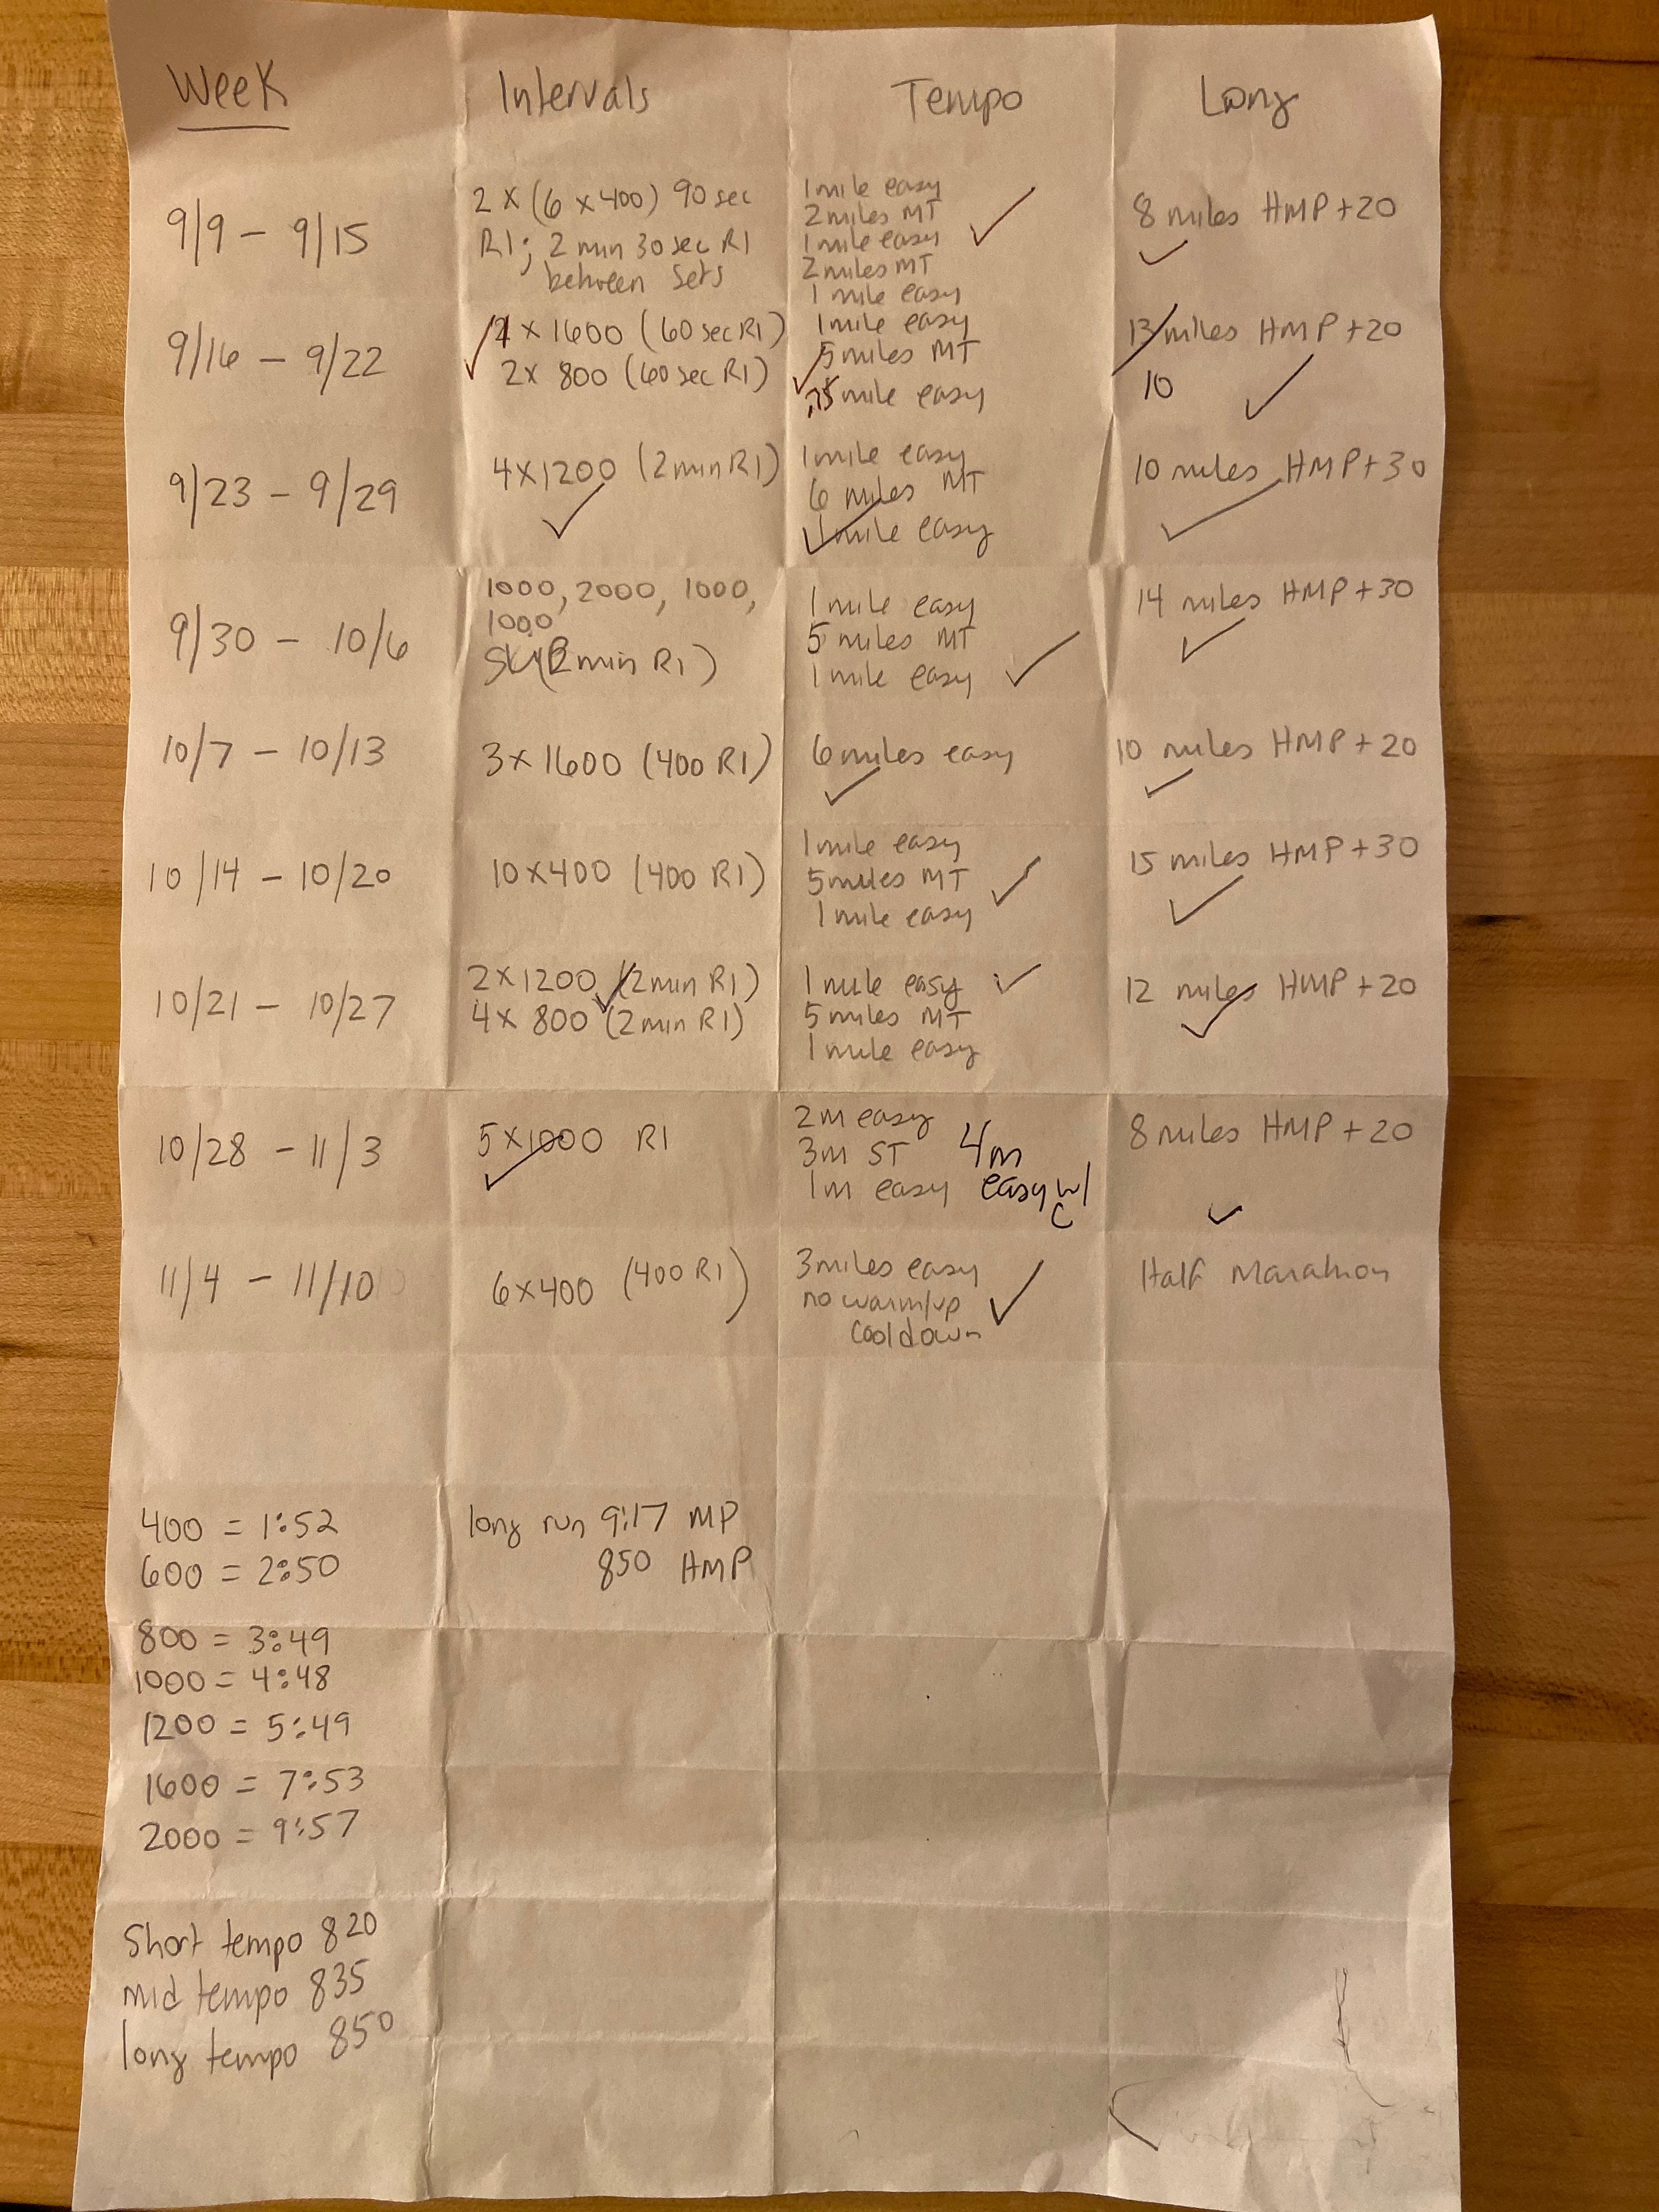 Week Intervals Tempo Long
9/9 - 9/15
2 x (6 x 400) 90 sec
RI; 2 min 30 sec RI
between sets
1 mile easy
2 miles MT
1 mile easy
2 miles MT
1 mile easy
8 miles HMP +20
9/16 - 9/22
x 1600 (60 sec RI)
2x 800 (60 sec RI)
1 mile easy
5 miles MT
.75 mile easy
13 miles HMP +20
10
9/23 - 9/29
4x1200 (2min RI)
1 mile easy
6 miles MT
1 mile easy
10 miles HMP+30
9/30 - 10/6
1000, 2000, 1000,
1000
(2 min RI)
1 mile easy
5 miles MT
1 mile easy
14 miles HMP+30
10/7 - 10/13
3 x 1600 (400 RI)
6 miles easy
10 miles HMP +20
10/14 - 10/20
10x400 (400 RI)
1 mile easy
5 miles MT
1 mile easy
15 miles HMP +30
10/21 - 10/27
2x1200 (2min RI)
4x 800 (2min RI)
1 mile easy
5 miles MT
1 mile easy
12 miles HMP +20
10/28 - 11/3
5x1000 RI
2m easy
3m ST
1m easy
4m
easy w/
C
8 miles HMP +20
11/4 - 11/10
6x400 (400 RI)
3 miles easy
no warm/up
cooldown
Half Marathon
400 = 1:52
600 = 2:50
800 = 3:49
1000 = 4:48
1200 = 5:49
1600 = 7:53
2000 = 9:57
long run 9:17 MP
850 HMP
Short tempo 820
mid tempo 835
long tempo 850